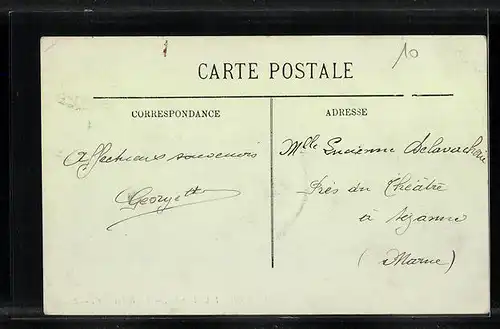 10
CARTE POSTALE
CORRESPONDANCE
ADRESSE
Affectueux souvenirs
Georgette
Mlle Lucienne
Près du Théâtre
à Sézanne
(Marne)